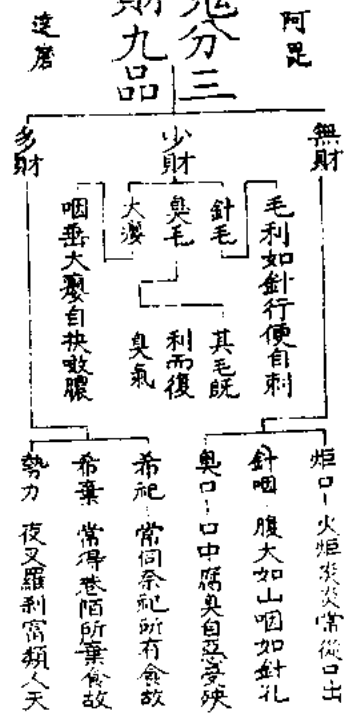 阿毘
鬼分三
財九品
達磨
無財
少財
多財
毛利如針行便自刺
針毛
臭毛
大癭
咽垂大癭自抉噉膿
其毛既
利而復
臭氣
炬口 火炬炎炎常從口出
針咽 腹大如山咽如針孔
臭口 口中腐臭自惡受殃
希祀 常伺祭祀所有食故
希棄 常得巷陌所棄食故
勢力 夜叉羅刹富類人天